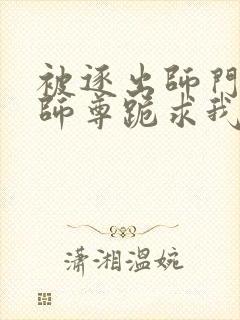 被逐出師門
師尊跪求我
瀟湘溫婉